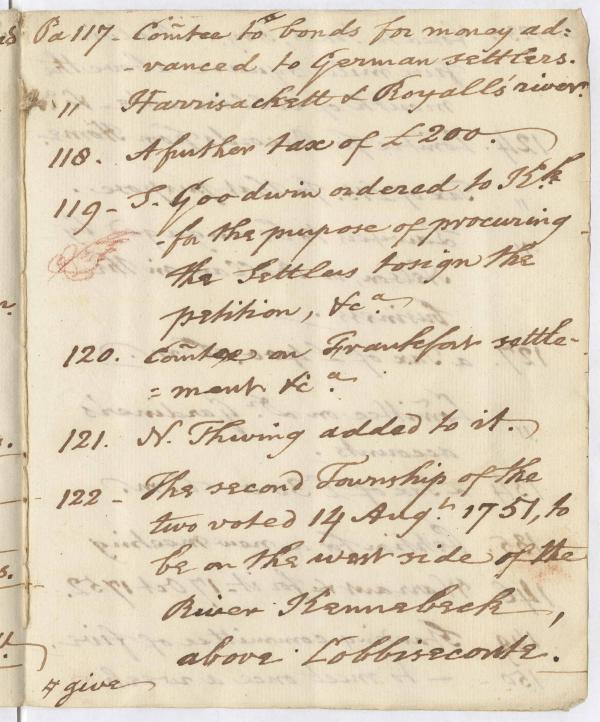 Pa 117 - Com̃tee to* bonds for money ad=
- vanced to German settlers.
" Harrisackett & Royall's river.
118. A further tax of £200.
119 - S. Goodwin ordered to
- for the purpose of procuring
the Settlers to sign the
petition, &cᵃ.
120. Com̃tee on Frankfort settle-
= ment &cᵃ.
121. N. Thwing added to it.
122 - The second Township of the
two voted 14 Augᵗ. 1751, to
be on the west side of the
River Kennebeck,
above Cobbiseconte.
* give